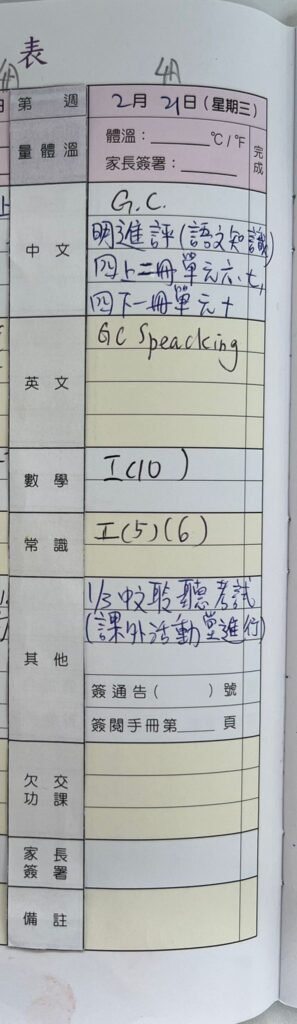 表
4A
4A
第 週
2月 21日(星期三)
量體溫
體溫:
°C/°F
家長簽署:
完成
中文
G.C.
明進評(語文知識)
四上二冊單元六、七,
四下一冊單元十
英文
GC Speacking
數學
I(10)
常識
I(5)(6)
其他
1/3中文聆聽考試
(課外活動堂進行)
簽通告( )號
簽閱手冊第 頁
欠交
功課
家長
簽署
備註